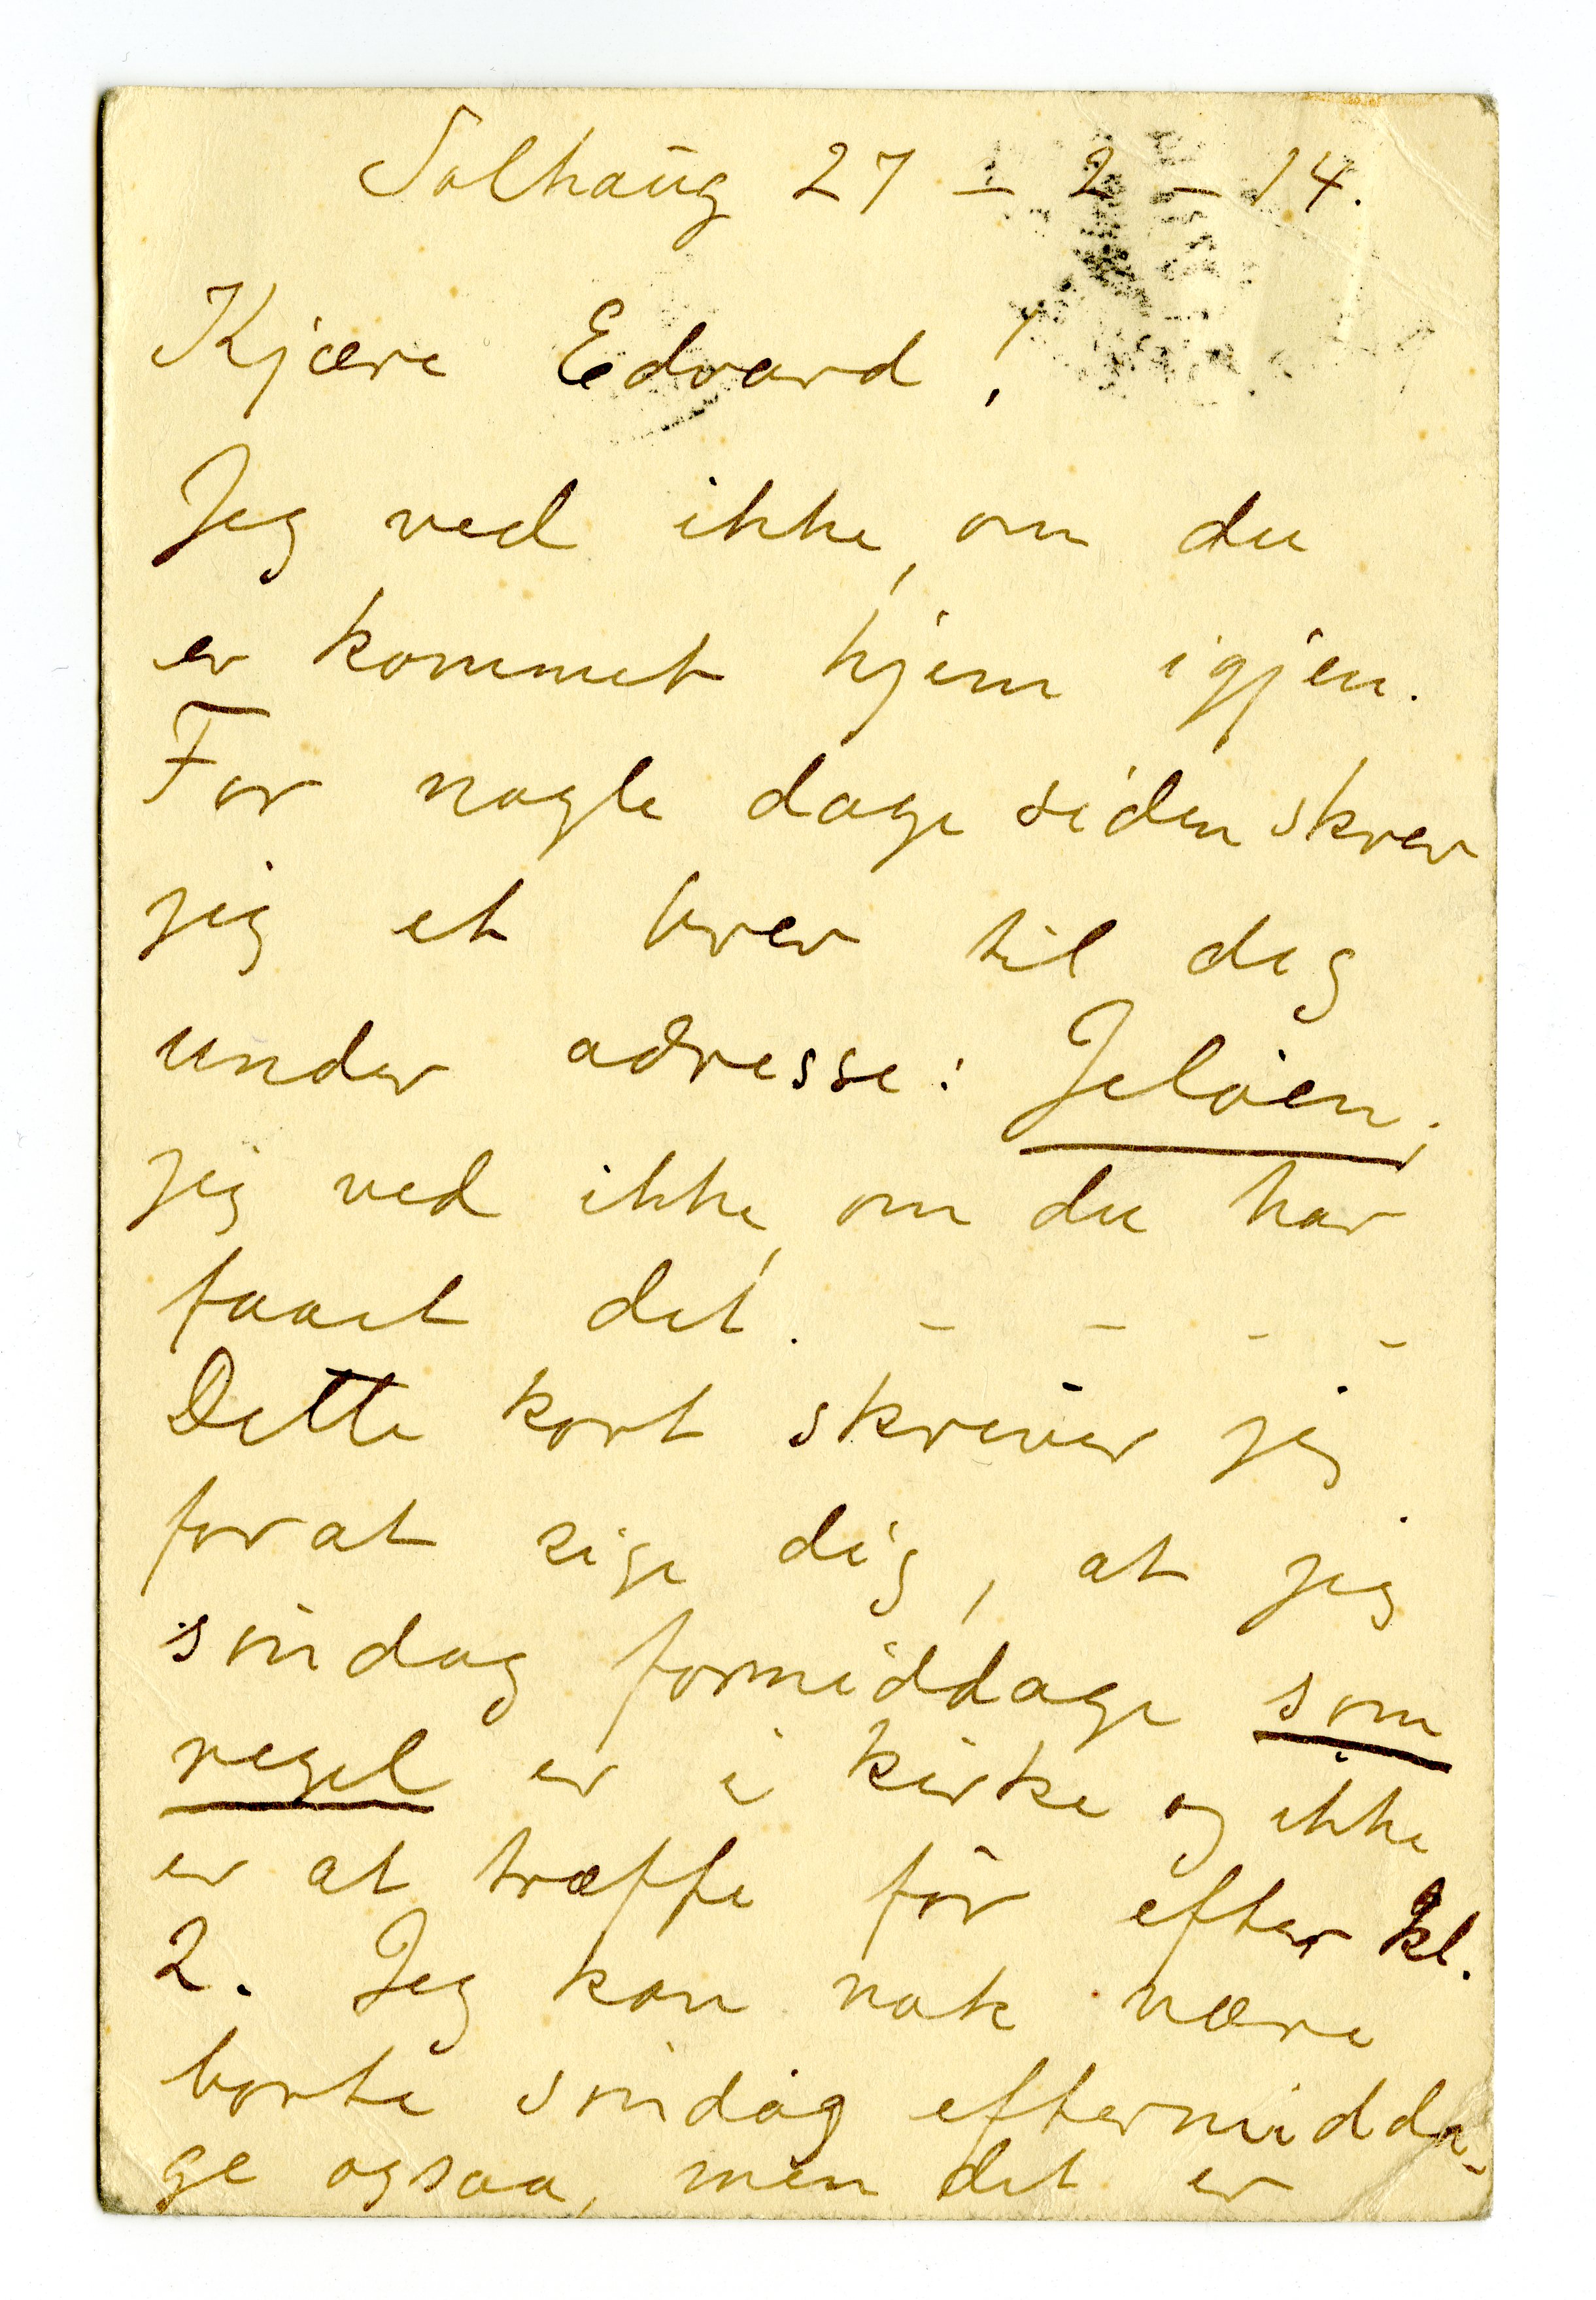 Solhaug 27 - 2 - 14.
Kjære Edvard!
Jeg ved ikke, om du
er kommet hjem igjen.
For nogle dage siden skrev
jeg et brev til dig
under adresse: Jeløen;
jeg ved ikke, om du har
faaet det. - - - -
Dette kort skriver jeg
forat sige dig, at jeg
søndag formiddage som
regel er i kirke og ikke
er at træffe før efter kl.
2. Jeg kan nok være
borte søndag eftermidda-
ge ogsaa, men det er